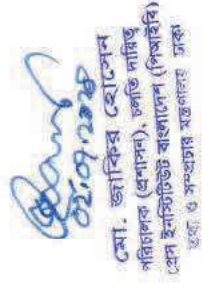 ০২.০৭.২০২৫
মো. জাকির হোসেন
পরিচালক (প্রশাসন), চলতি দায়িত্ব
প্রেস ইনস্টিটিউট বাংলাদেশ (পিআইবি)
তথ্য ও সম্প্রচার মন্ত্রণালয়, ঢাকা